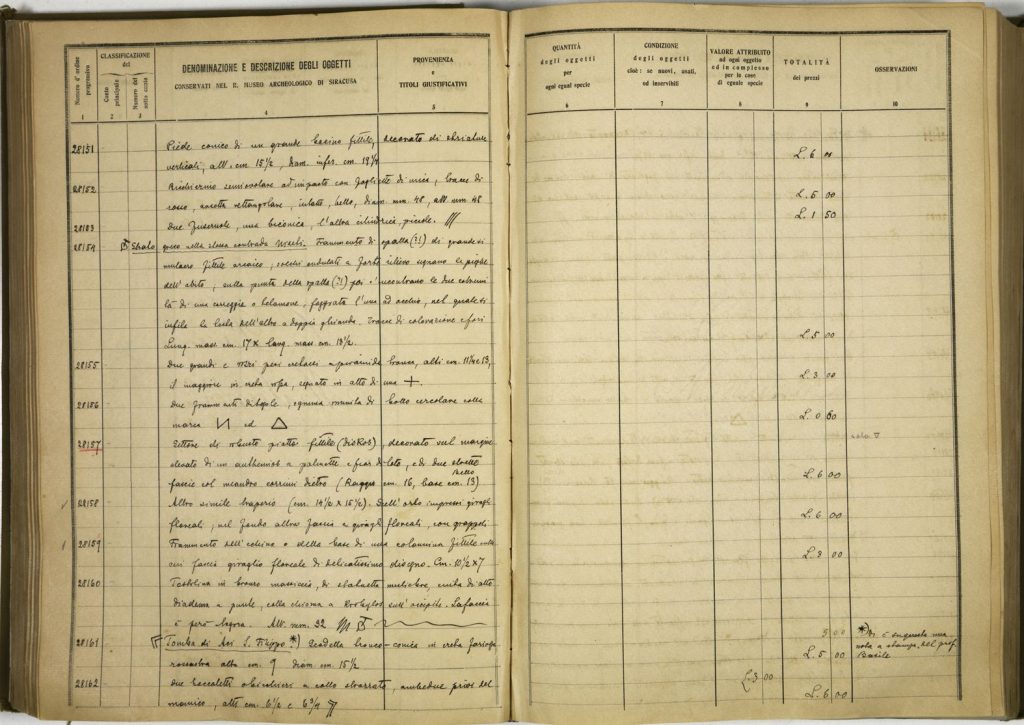 Numero d'ordine progressivo
CLASSIFICAZIONE del
Conto principale
Numero del sotto conto
DENOMINAZIONE E DESCRIZIONE DEGLI OGGETTI
CONSERVATI NEL R. MUSEO ARCHEOLOGICO DI SIRACUSA
PROVENIENZA
e
TITOLI GIUSTIFICATIVI
QUANTITÀ
degli oggetti
per
ogni egual specie
CONDIZIONE
degli oggetti
cioè: se nuovi, usati,
od inservibili
VALORE ATTRIBUITO
ad ogni oggetto
ed in complesso
per le cose
di eguale specie
TOTALITÀ
dei prezzi
OSSERVAZIONI
1 2 3 4 5 6 7 8 9 10
28151 Piede conico di un grande bacino fittile, decorato di striature
verticali, alt. cm 15 1/2, diam. infer. cm 19 1/4 L. 6 00
28152 semiovolare ad impasto con di mica, tracce di
rosso, ansetta rettangolare, intatto, bello, diam. mm. 48, alt. mm 48 L. 5 00
28153 due fuseruole, una biconica, l'altra cilindrica, piccole. L. 1 50
28154 Strato greco nella stessa contrada Frammento di spalla (?!) di grande si
mulacro fittile arcaico; solchi ondulati a forte rilievo segnano le pieghe
dell'abito, sulla punta della spalla (?!) poi s'incontrano le due estremi
tà di una correggia o foggiata l'una ad occhio, nel quale si
infila la testa dell'altra a doppia ghianda. Tracce di colorazione e fori
Lung. mass cm. 17 x larg. mass cm. 13 1/2. L. 5 00
28155 Due grandi e pesi a piramide tronca, alti cm. e 13,
il maggiore in creta rossa, segnato in alto di una +. L. 3 00
28156 Due frammenti di tegole, ognuna munita di bollo circolare colla
marca И ed △ L. 0 60
28157 Settore di robusto piatto fittile decorato sul margine
elevato di un anthemios a palmette e fior di loto, e di due strette
fascie col meandro corrimi dietro (Raggio cm. 16, base cm. 13) L. 6 00
28158 Altro simile (cm. 14 1/2 x 15 1/2). Sull'orlo impressi girali
floreali; nel fondo altra fascia a girali floreali, con grappoli L. 6 00
28159 Frammento dell'echino o della base di una colonnina fittile sulla
cui faccia giraglio floreale di delicatissimo disegno. Cm. 10 1/2 x 7 L. 3 00
28160 Testolina in bronzo massiccia, di statuetta muliebre, cinta di alto
diadema a punte, colla chioma a Krobylos sull'occipite. La faccia
è però logora. Alt. mm. 32 3 00
28161 Tomba di Aci S. Filippo *) Scodella tronco-conica in creta
rossastra alta cm. 9 diam cm. 15 1/2 L. 5 00
* Vi è su questa una nota a stampa del prof. Basile
28162 due boccaletti a collo ambedue privi del
manico, alti cm. 6 1/2 e 6 3/4 L. 3 00 L. 6 00